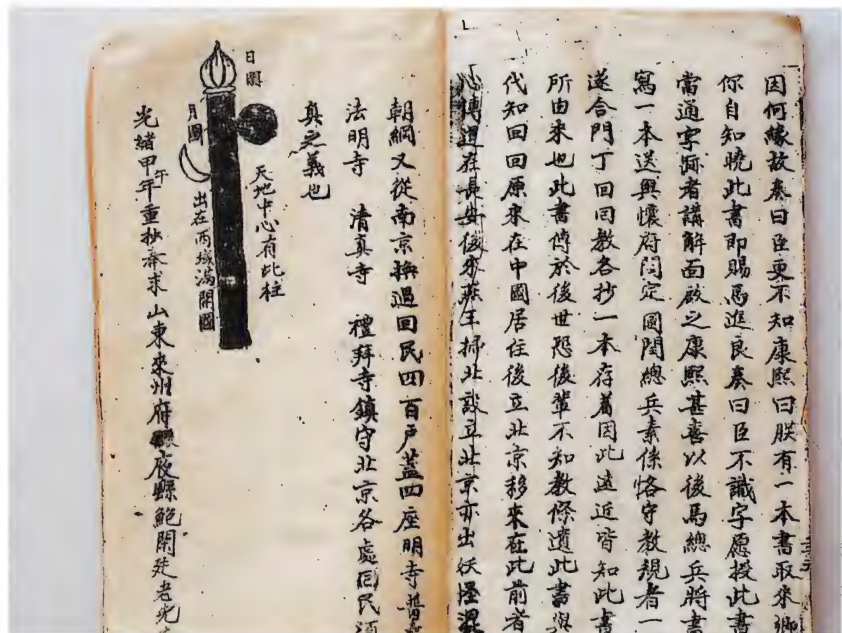 因何緣故奏曰臣更不知康熙曰朕有一本書取來卿
你自知曉此書即賜馬進良奏曰臣不識字愿授此書
當通字跡者講解面啟之康熙甚喜以後馬總兵將書
寫一本送與懷府閆定國閆總兵素係恪守教規者一
遂合門丁回回教各抄一本存着因此遠近皆知此書
所由來也此書傳於後世恐後輩不知教條遺此書與
代知回回原來在中國居住後立北京移來在此前者
心傳道存長安後來燕王掃北設立北京亦出妖怪混
朝綱又從南京搬過回民四百戶蓋四座明寺普
法明寺 清真寺 禮拜寺鎮守北京各處回民
真之義也
日圓
天地中心有此柱
月圓
出在西域滿開國
光緒甲午年重抄奔求山東萊州府夜縣鮑開廷老